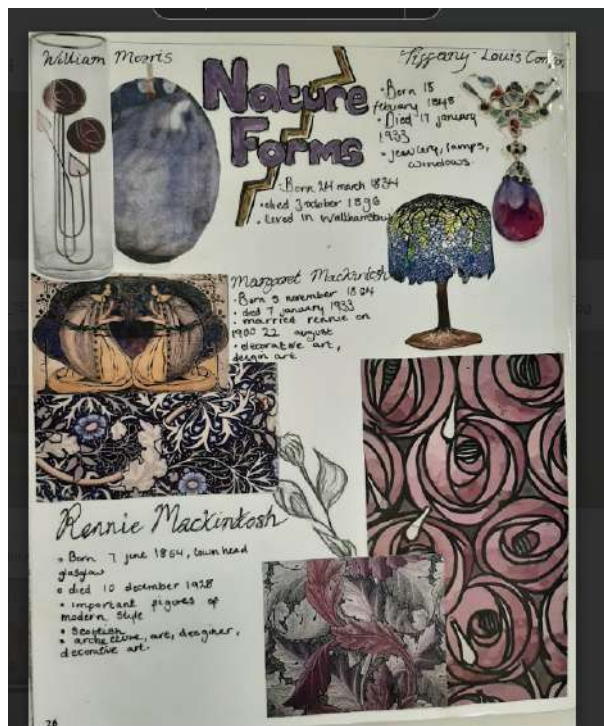 William Morris
Nature
Forms
Tiffany - Louis
• Born 18
february 1848
• Died 17 january
1933
• jewlery, lamps,
windows.
• Born 24 march 1834
• died 3 october 1896
• Lived in
Margaret Mackintosh
• Born 5 november 1864
• died 7 january 1933
• married rennie on
1900 22 august
• decorative art,
design art
Rennie Mackintosh
• Born 7 june 1864, townhead
glasglow
• died 10 december 1928
• important figures of
modern style
• Scottish
• art, desginer,
decorative art.
26